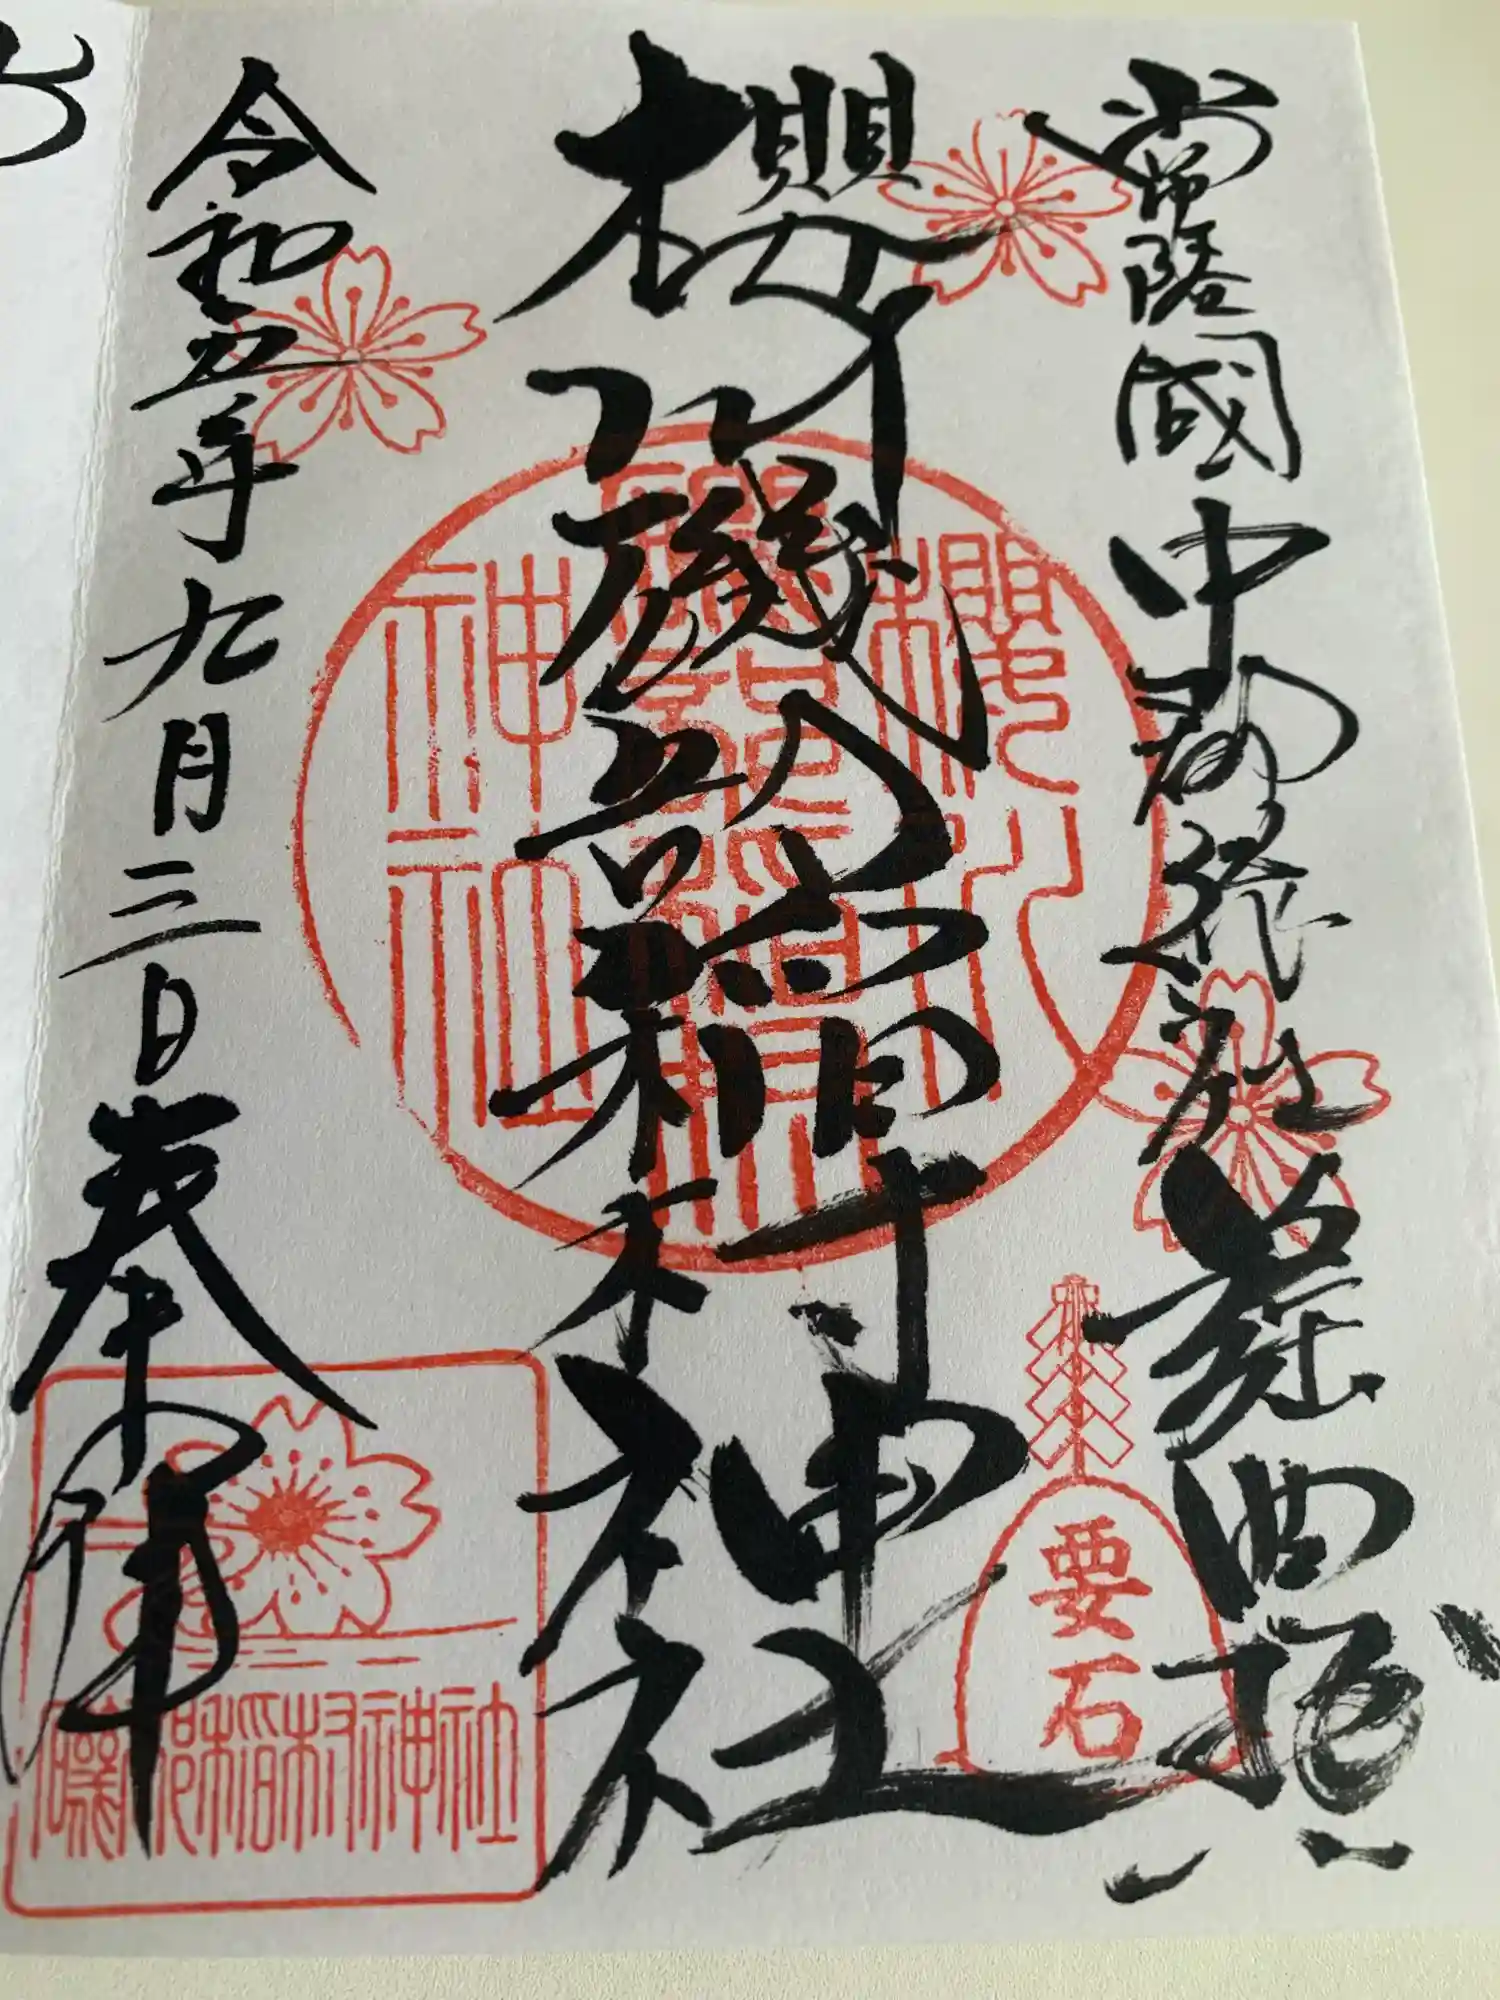 常陸國中郡総社
櫻川磯部稲村神社
令和五年九月三日奉拝
櫻川
磯部稲村
神社
要石
磯部稲村神社